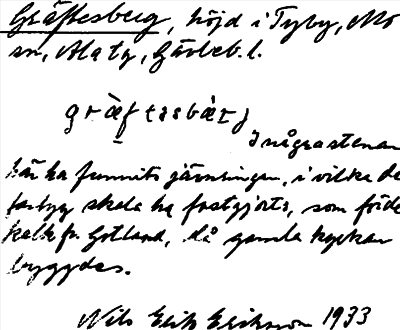 Gräftesberg, höjd i Tyby, Mo
sn, Ala tg, Gävleb. l.
gräftasbärj
I några stenar
här ha funnits järnringar, i vilka de
fartyg skola ha fastgjorts, som förde
kalk fr. Gotland, då gamla kyrkan
byggdes.
Nils Erik Erikson 1933